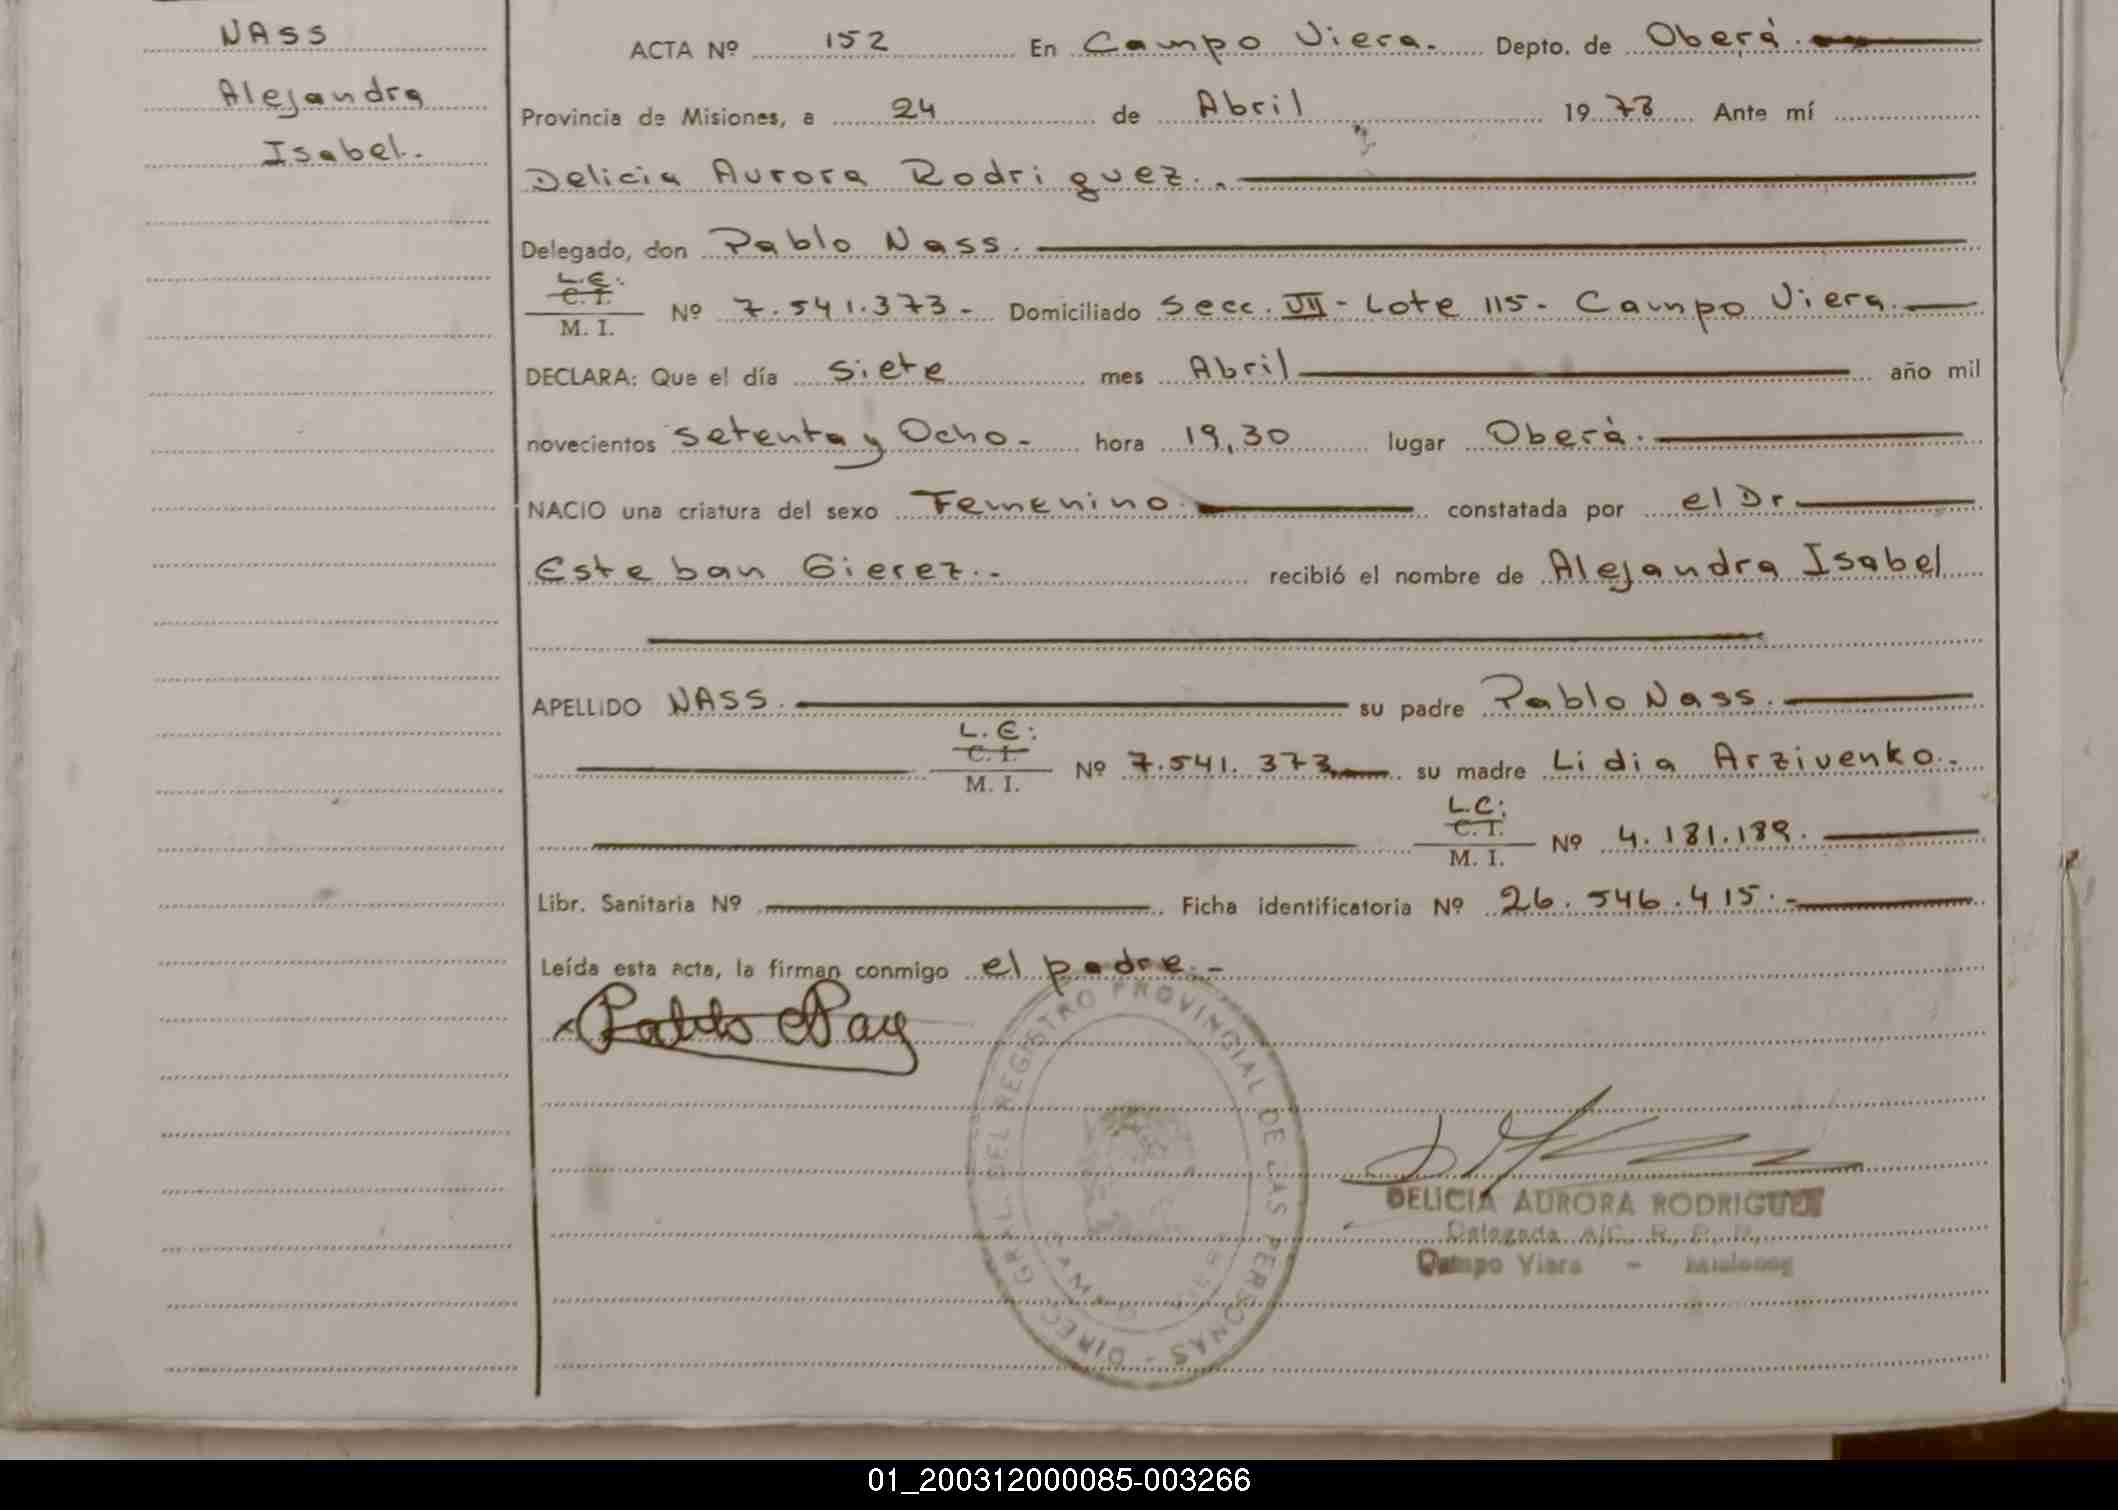 NASS
Alejandra
Isabel.
ACTA Nº 152 En Campo Viera. Depto. de Oberá.
Provincia de Misiones, a 24 de Abril 1978 Ante mí
Delicia Aurora Rodriguez.
Delegado, don Pablo Nass.
L.E:
C. I.
M. I. Nº 7.541.373- Domiciliado Secc. VII - Lote 115- Campo Viera.
DECLARA: Que el día siete mes Abril año mil
novecientos setenta y Ocho- hora 19,30 lugar Oberá.
NACIO una criatura del sexo Femenino. constatada por el Dr
Esteban Gierez.- recibió el nombre de Alejandra Isabel
APELLIDO NASS. su padre Pablo Nass.
L.E:
C. I.
M. I. Nº 7.541.373 su madre Lidia Arzivenko.-
L.C:
C. I.
M. I. Nº 4.181.189.
Libr. Sanitaria Nº Ficha identificatoria Nº 26.546.415.-
Leída esta acta, la firman conmigo el padre.-
DIREC. GRAL. DEL REGISTRO PROVINCIAL DE LAS PERSONAS -
DELICIA AURORA RODRIGUEZ
Delegada A/C. R. P. P.
Campo Viera - Misiones
01_200312000085-003266